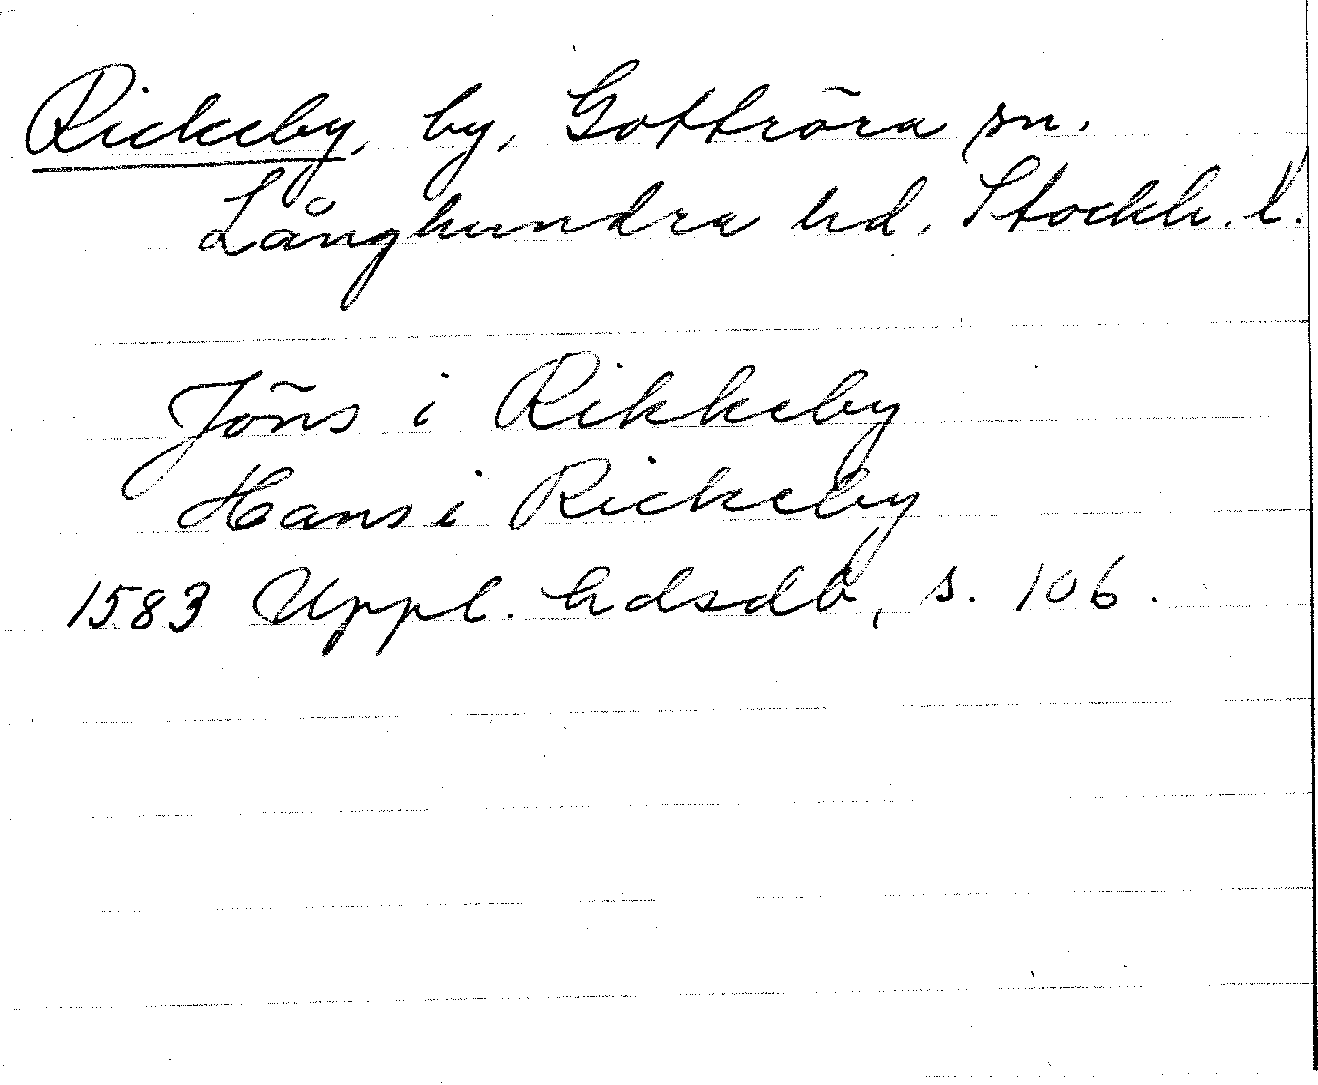 Rickeby, by, Gottröra sn.
Långhundra hd. Stockh. l.
Jöns i Rikkeby
Hans i Rickeby
1583 Uppl. hdsdb, s. 106.